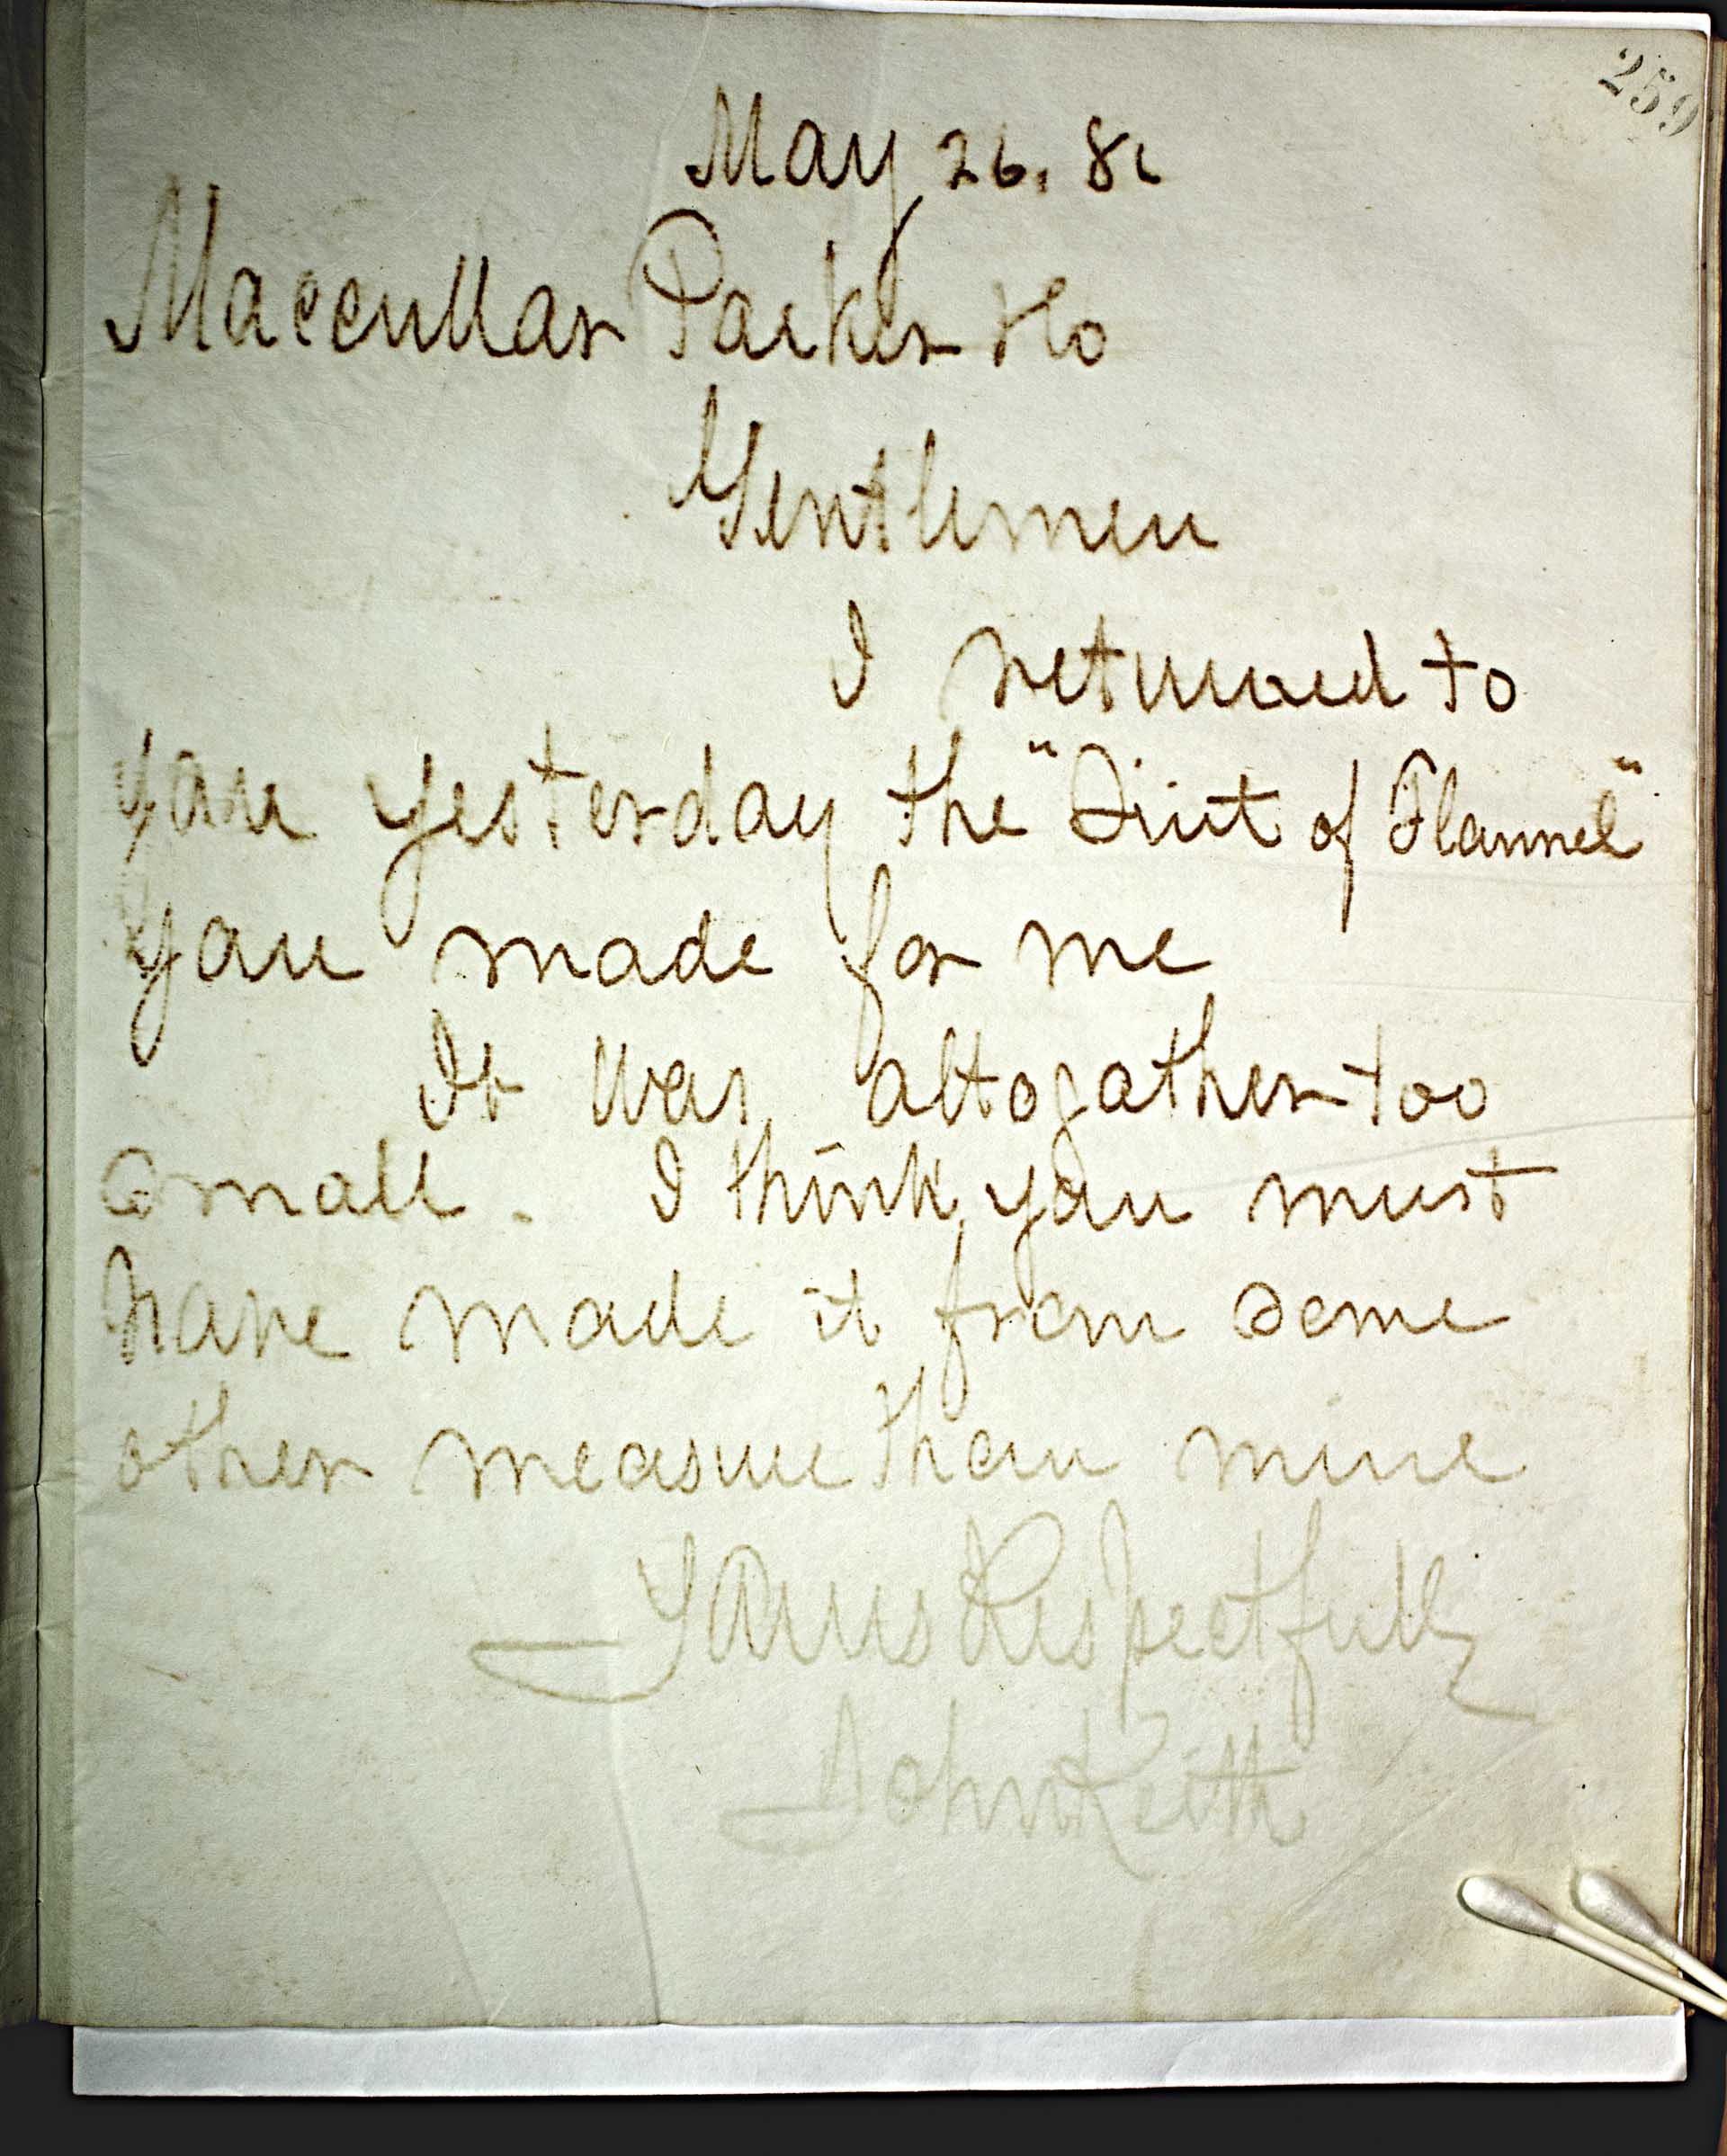 259
May 26. 82
Maccullar Parker & Co
Gentlemen
I returned to
you yesterday the "Suit of Flannel"
you made for me
It was altogather too
small. I think you must
have made it from some
other measure than mine
Yours Respectfully
John Keith